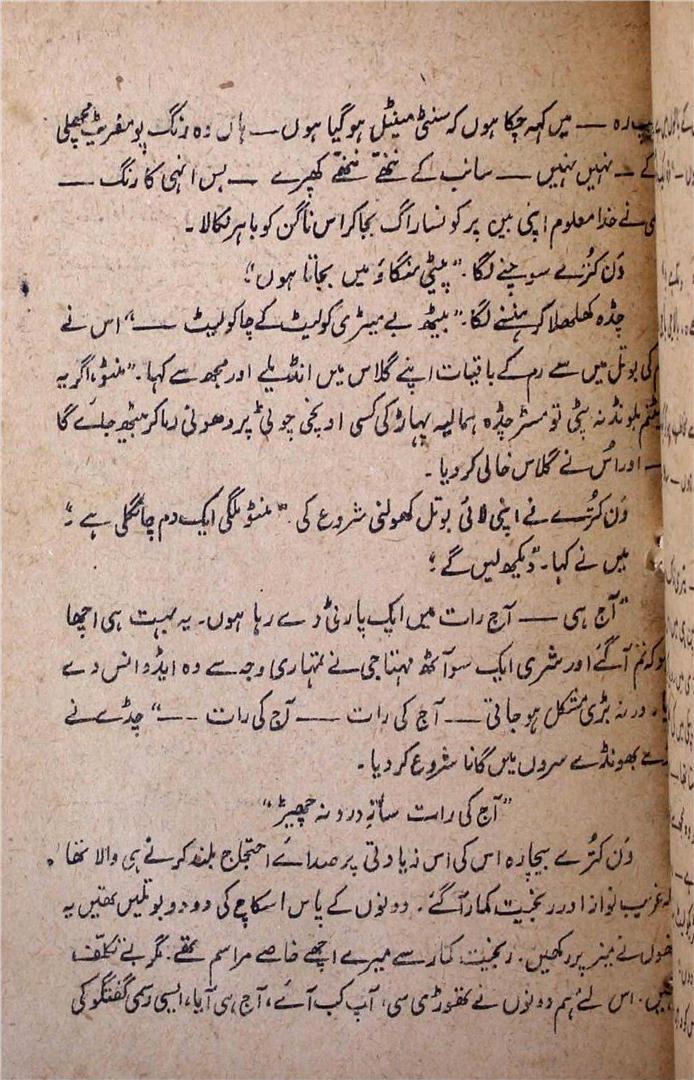 چپ رہ — میں کہہ چکا ہوں کہ سنٹی مینٹل ہو گیا ہوں — ہاں وہ رنگ پومفریٹ مچھلی
کے — نہیں نہیں — سانپ کے ننھے ننھے کھپرے — بس انہی کا رنگ —
نے خدا معلوم اپنی بین پر کونسا راگ بجا کر اس ناگن کو باہر نکالا۔
وَن کُترے سوچنے لگا۔ "پیٹی منگاؤ میں بجاتا ہوں"
چڈہ کھلکھلا کر ہنسنے لگا۔ "بیٹھ بے میٹری کولیٹ کے چاکولیٹ —" اس نے
کی بوتل میں سے رم کے باقیات اپنے گلاس میں انڈیلے اور مجھ سے کہا۔ "منٹو، اگر یہ
پلیٹنم بلونڈ نہ پٹی تو مسٹر چڈہ ہمالیہ پہاڑ کی کسی اونچی چوٹی پر دھونی رما کر بیٹھ جائے گا
— اور اُس نے گلاس خالی کر دیا۔
وَن کُترے نے اپنی لائی بوتل کھولنی شروع کی۔ "منٹو ملگی ایک دم چانگلی ہے"
میں نے کہا۔ "دیکھ لیں گے"
"آج ہی — آج رات میں ایک پارٹی دے رہا ہوں۔ یہ بہت ہی اچھا
ہوا کہ تم آ گئے اور شری ایک سو آٹھ مہتا جی نے تمہاری وجہ سے وہ ایڈوانس دے
ورنہ بڑی مشکل ہو جاتی — آج کی رات — آج کی رات —" چڈے نے
بھونڈے سروں میں گانا شروع کر دیا۔
"آج کی رات سازِ درد نہ چھیڑ"
وَن کُترے بیچارہ اس کی اس زیادتی پر صدائے احتجاج بلند کرنے ہی والا تھا
کہ غریب نواز اور رنجیت کمار آ گئے۔ دونوں کے پاس اسکاچ کی دو دو بوتلیں تھیں یہ
انھوں نے میز پر رکھیں۔ رنجیت کمار سے میرے اچھے خاصے مراسم تھے۔ مگر بے تکلف
نہیں۔ اس لئے ہم دونوں نے تھوڑی سی، آپ کب آئے، آج ہی آیا، ایسی رسمی گفتگو کی